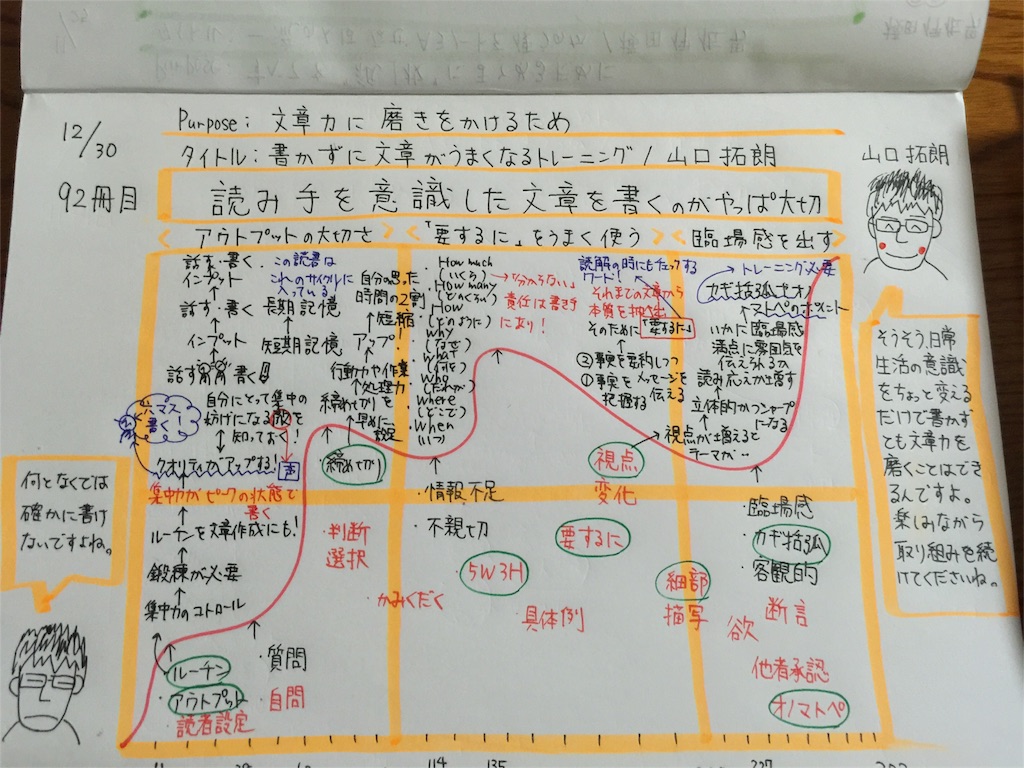 12/30
92冊目
Purpose: 文章力に磨きをかけるため
タイトル:書かずに文章がうまくなるトレーニング/山口拓朗
読み手を意識した文章を書くのがやっぱ大切
アウトプットの大切さ
「要するに」をうまく使う
臨場感を出す
山口拓朗
話す・書く
インプット
話す・書く
インプット
話す
書く
この読書は
これへのサイクルに
入っている
長期記憶
短期記憶
自分にとって集中の
妨げになる
知っておく!
声
クオリティがアップする!
集中力がピークの状態で
書く
ルーチンを文章作成にも!
鍛棟が必要
集中力のコトロール
ルーチン
アウトプット
読者設定
質問
自問
自分の思った
時間の2割
短縮
アップ
行動力や作業
処理力
締めせりを
早めに
設定
締めせり
判断
選択
How much
(いくら)
How many
(どれくらい)
How
(どのように)
Why
(なぜ)
What
(何を)
Who
(だれが)
Where
(どこで)
When
(いつ)
「分からない」
責任は書き手
にあり!
・情報不足
・不親切
5W3H
・かみくだく
・具体例
読解の時にもチェックする
ワード!
それまでの文章から
本質を抽出
そのために「要するに」
②事実を要約しつつ
メッセージを
伝える
①事実を
把握する
視点
変化
要するに
細部
描写
トレーニング必要
カギ括弧
いかに臨場感
満点に雰囲気を
伝えられるか
読み応えが増す
立体的かつシャープ
になる
視点が増えると
テーマが‥
臨場感
カギ括弧
客観的
断言
欲
他者承認
オノマトペ
何となくでは
確かに書け
ないですよね。
そうそう、日常
生活の意識
をちょっと変える
だけで書かず
とも文章力を
磨くことはでき
るんですよ。
楽しみながら
取り組みを続
けてくださいね。
114
135
227